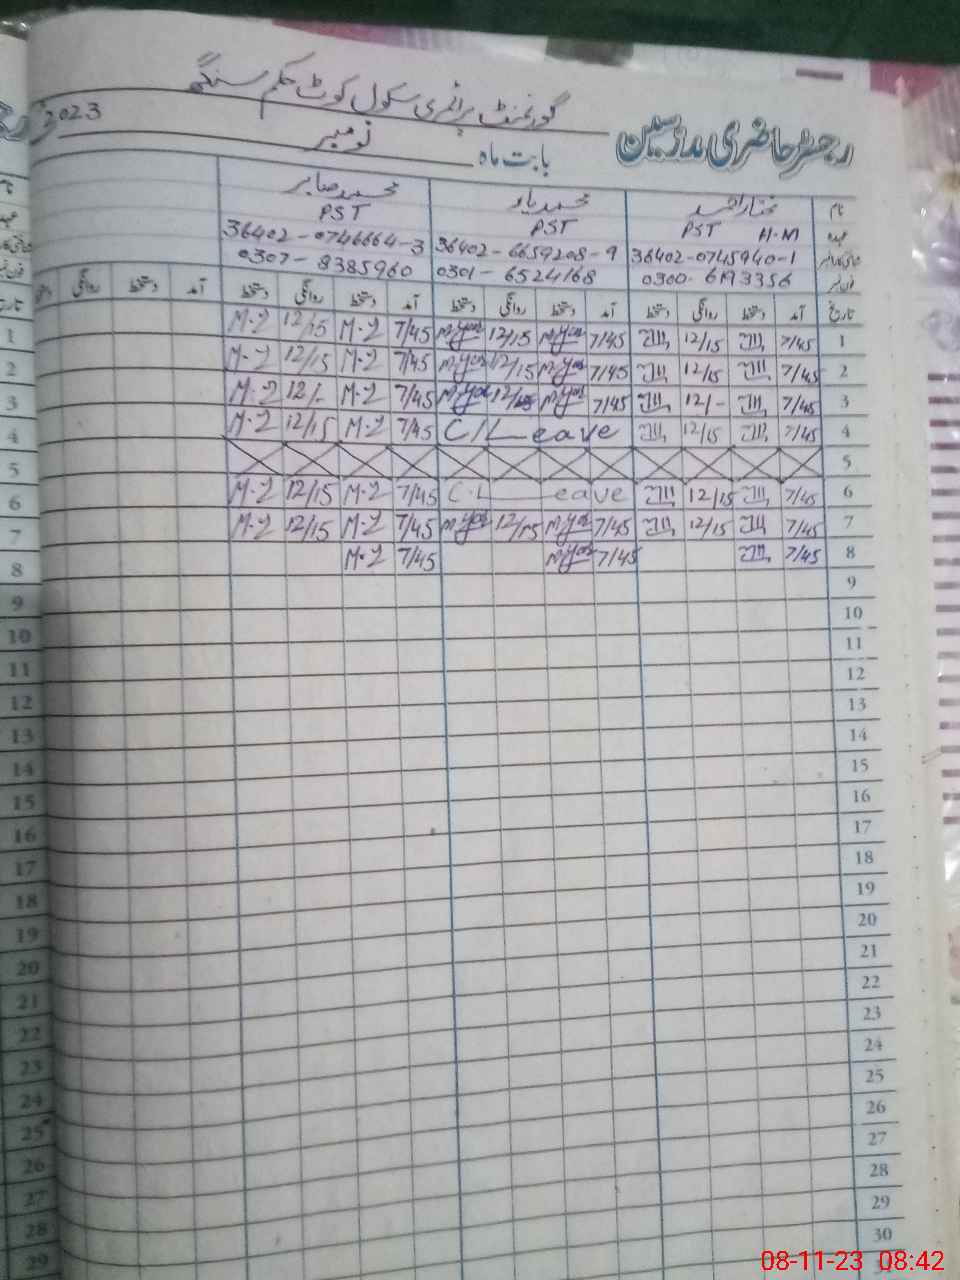 گورنمنٹ پرائمری سکول کوٹ حکم سنگھ
رجسٹر حاضری مدرسین
بابت ماہ نومبر 2023
نام مختار احمد محمد یار محمد صابر
عہدہ PST H.M PST PST
36402-0745940-1 36402-6659208-9 36402-0746664-3
0300-6193356 0301-6524168 0307-8385960
تاریخ آمد دستخط روانگی دستخط آمد دستخط روانگی دستخط آمد دستخط روانگی دستخط آمد دستخط روانگی
1 7/45 12/15 7/45 M.Yar 12/15 M.Yar 7/45 M.S 12/15 M.S
2 7/45 12/15 7/45 M.Yar 12/15 M.Yar 7/45 M.S 12/15 M.S
3 7/45 12/- 7/45 M.Yar M.Yar 7/45 M.S 12/- M.S
4 7/45 12/15 C/Leave 7/45 M.S 12/15 M.S
5
6 7/45 12/15 C.Leave 7/45 M.S 12/15 M.S
7 7/45 12/15 7/45 M.Yar 12/15 M.Yar 7/45 M.S 12/15 M.S
8 7/45 7/45 M.Yar 7/45 M.S
9
10
11
12
13
14
15
16
17
18
19
20
21
22
23
24
25
26
27
28
29
30
1
2
3
4
5
6
7
8
9
10
11
12
13
14
15
16
17
18
19
20
21
22
23
24
25
26
27
28
29
08-11-23 08:42